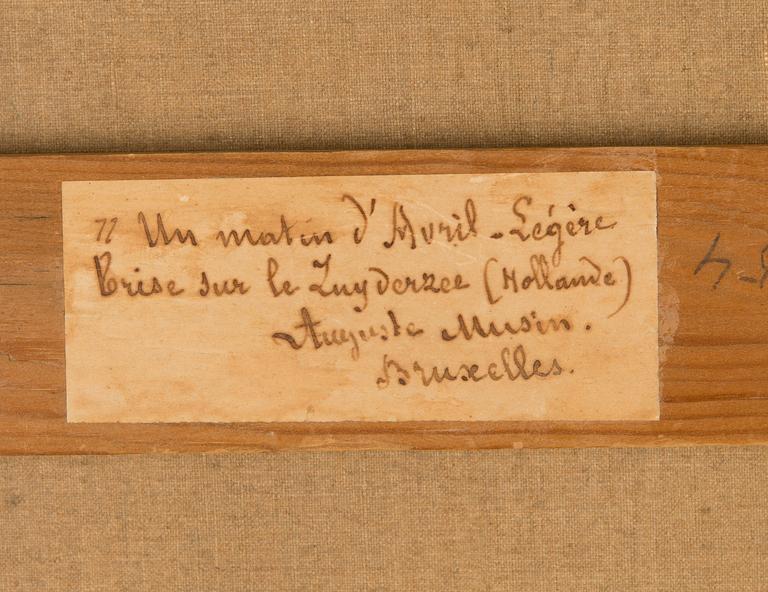 " Un matin d'Avril - Légère
brise sur le Zuyderzee (Hollande)
Auguste Musin.
Bruxelles.